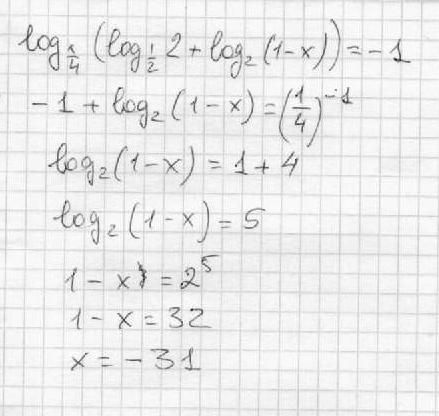 log_{1/4} (log_{1/2} 2 + log_2 (1-x)) = -1
-1 + log_2 (1-x) = (1/4)^{-1}
log_2 (1-x) = 1 + 4
log_2 (1-x) = 5
1 - x = 2^5
1 - x = 32
x = -31